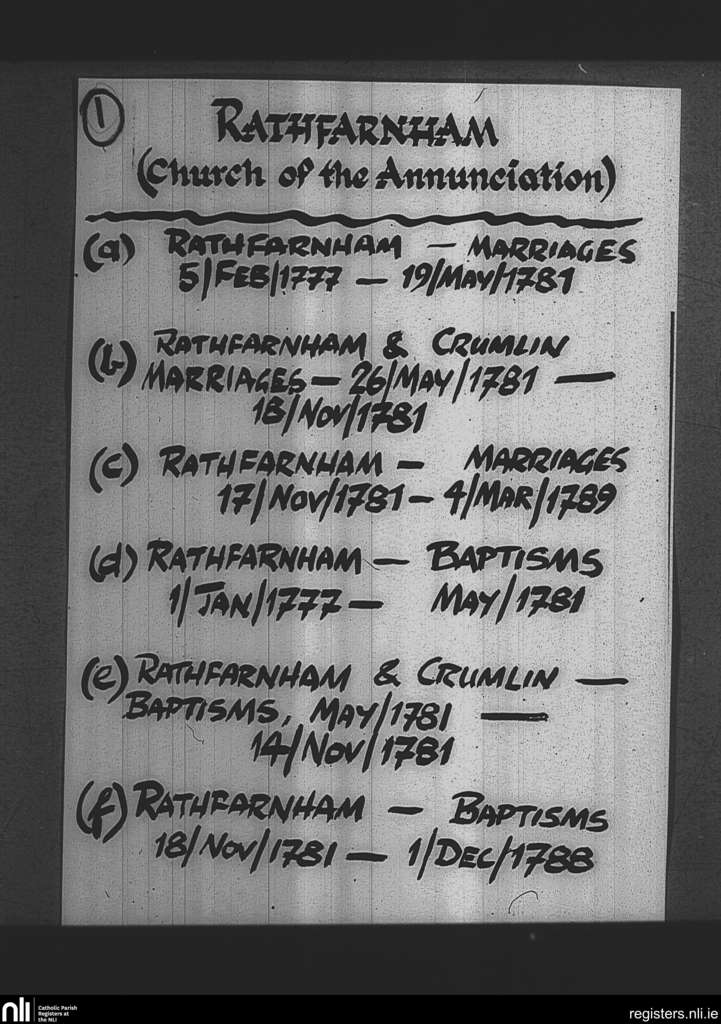 1
RATHFARNHAM
(Church of the Annunciation)
(a) RATHFARNHAM — MARRIAGES
5/FEB/1777 — 19/MAY/1781
(b) RATHFARNHAM & CRUMLIN
MARRIAGES — 26/MAY/1781 —
18/NOV/1781
(c) RATHFARNHAM — MARRIAGES
17/NOV/1781 — 4/MAR/1789
(d) RATHFARNHAM — BAPTISMS
1/JAN/1777 — MAY/1781
(e) RATHFARNHAM & CRUMLIN —
BAPTISMS, MAY/1781 —
14/NOV/1781
(f) RATHFARNHAM — BAPTISMS
18/NOV/1781 — 1/DEC/1788
nli
Catholic Parish
Registers at
the NLI
registers.nli.ie